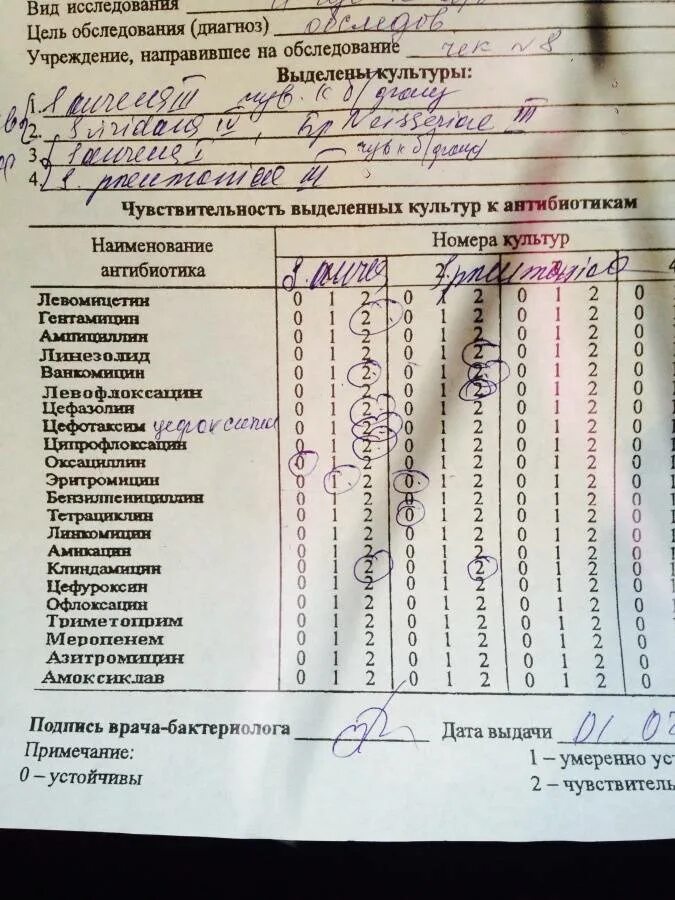 Вид исследования
Цель обследования (диагноз) обследов
Учреждение, направившее на обследование чек №8
Выделены культуры:
1. S aureus III чув. к б/фагу
2. S viridans IV, Гр Neisseriae III
3. S aureus I чув к б/фагу
4. S. pneumoniae III
Чувствительность выделенных культур к антибиотикам
Наименование антибиотика Номера культур
S. aureus S. pneumoniae 4
Левомицетин 0 1 2 0 1 2 0 1 2 0
Гентамицин 0 1 2 0 1 2 0 1 2 0
Ампициллин 0 1 2 0 1 2 0 1 2 0
Линезолид 0 1 2 0 1 2 0 1 2 0
Ванкомицин 0 1 2 0 1 2 0 1 2 0
Левофлоксацин 0 1 2 0 1 2 0 1 2 0
Цефазолин 0 1 2 0 1 2 0 1 2 0
Цефотаксим 0 1 2 0 1 2 0 1 2 0
Ципрофлоксацин 0 1 2 0 1 2 0 1 2 0
Оксациллин 0 1 2 0 1 2 0 1 2 0
Эритромицин 0 1 2 0 1 2 0 1 2 0
Бензилпенициллин 0 1 2 0 1 2 0 1 2 0
Тетрациклин 0 1 2 0 1 2 0 1 2 0
Линкомицин 0 1 2 0 1 2 0 1 2 0
Амикацин 0 1 2 0 1 2 0 1 2 0
Клиндамицин 0 1 2 0 1 2 0 1 2 0
Цефуроксин 0 1 2 0 1 2 0 1 2 0
Офлоксацин 0 1 2 0 1 2 0 1 2 0
Триметоприм 0 1 2 0 1 2 0 1 2 0
Меропенем 0 1 2 0 1 2 0 1 2 0
Азитромицин 0 1 2 0 1 2 0 1 2 0
Амоксиклав 0 1 2 0 1 2 0 1 2 0
Подпись врача-бактериолога Дата выдачи 01 02
Примечание: 1 – умеренно ус
0 – устойчивы 2 – чувствитель